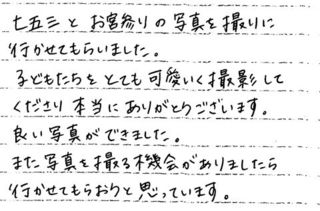 七五三とお宮参りの写真を撮りに
行かせてもらいました。
子どもたちをとても可愛いく撮影して
くださり本当にありがとうございます。
良い写真ができました。
また写真を撮る機会がありましたら
行かせてもらおうと思っています。